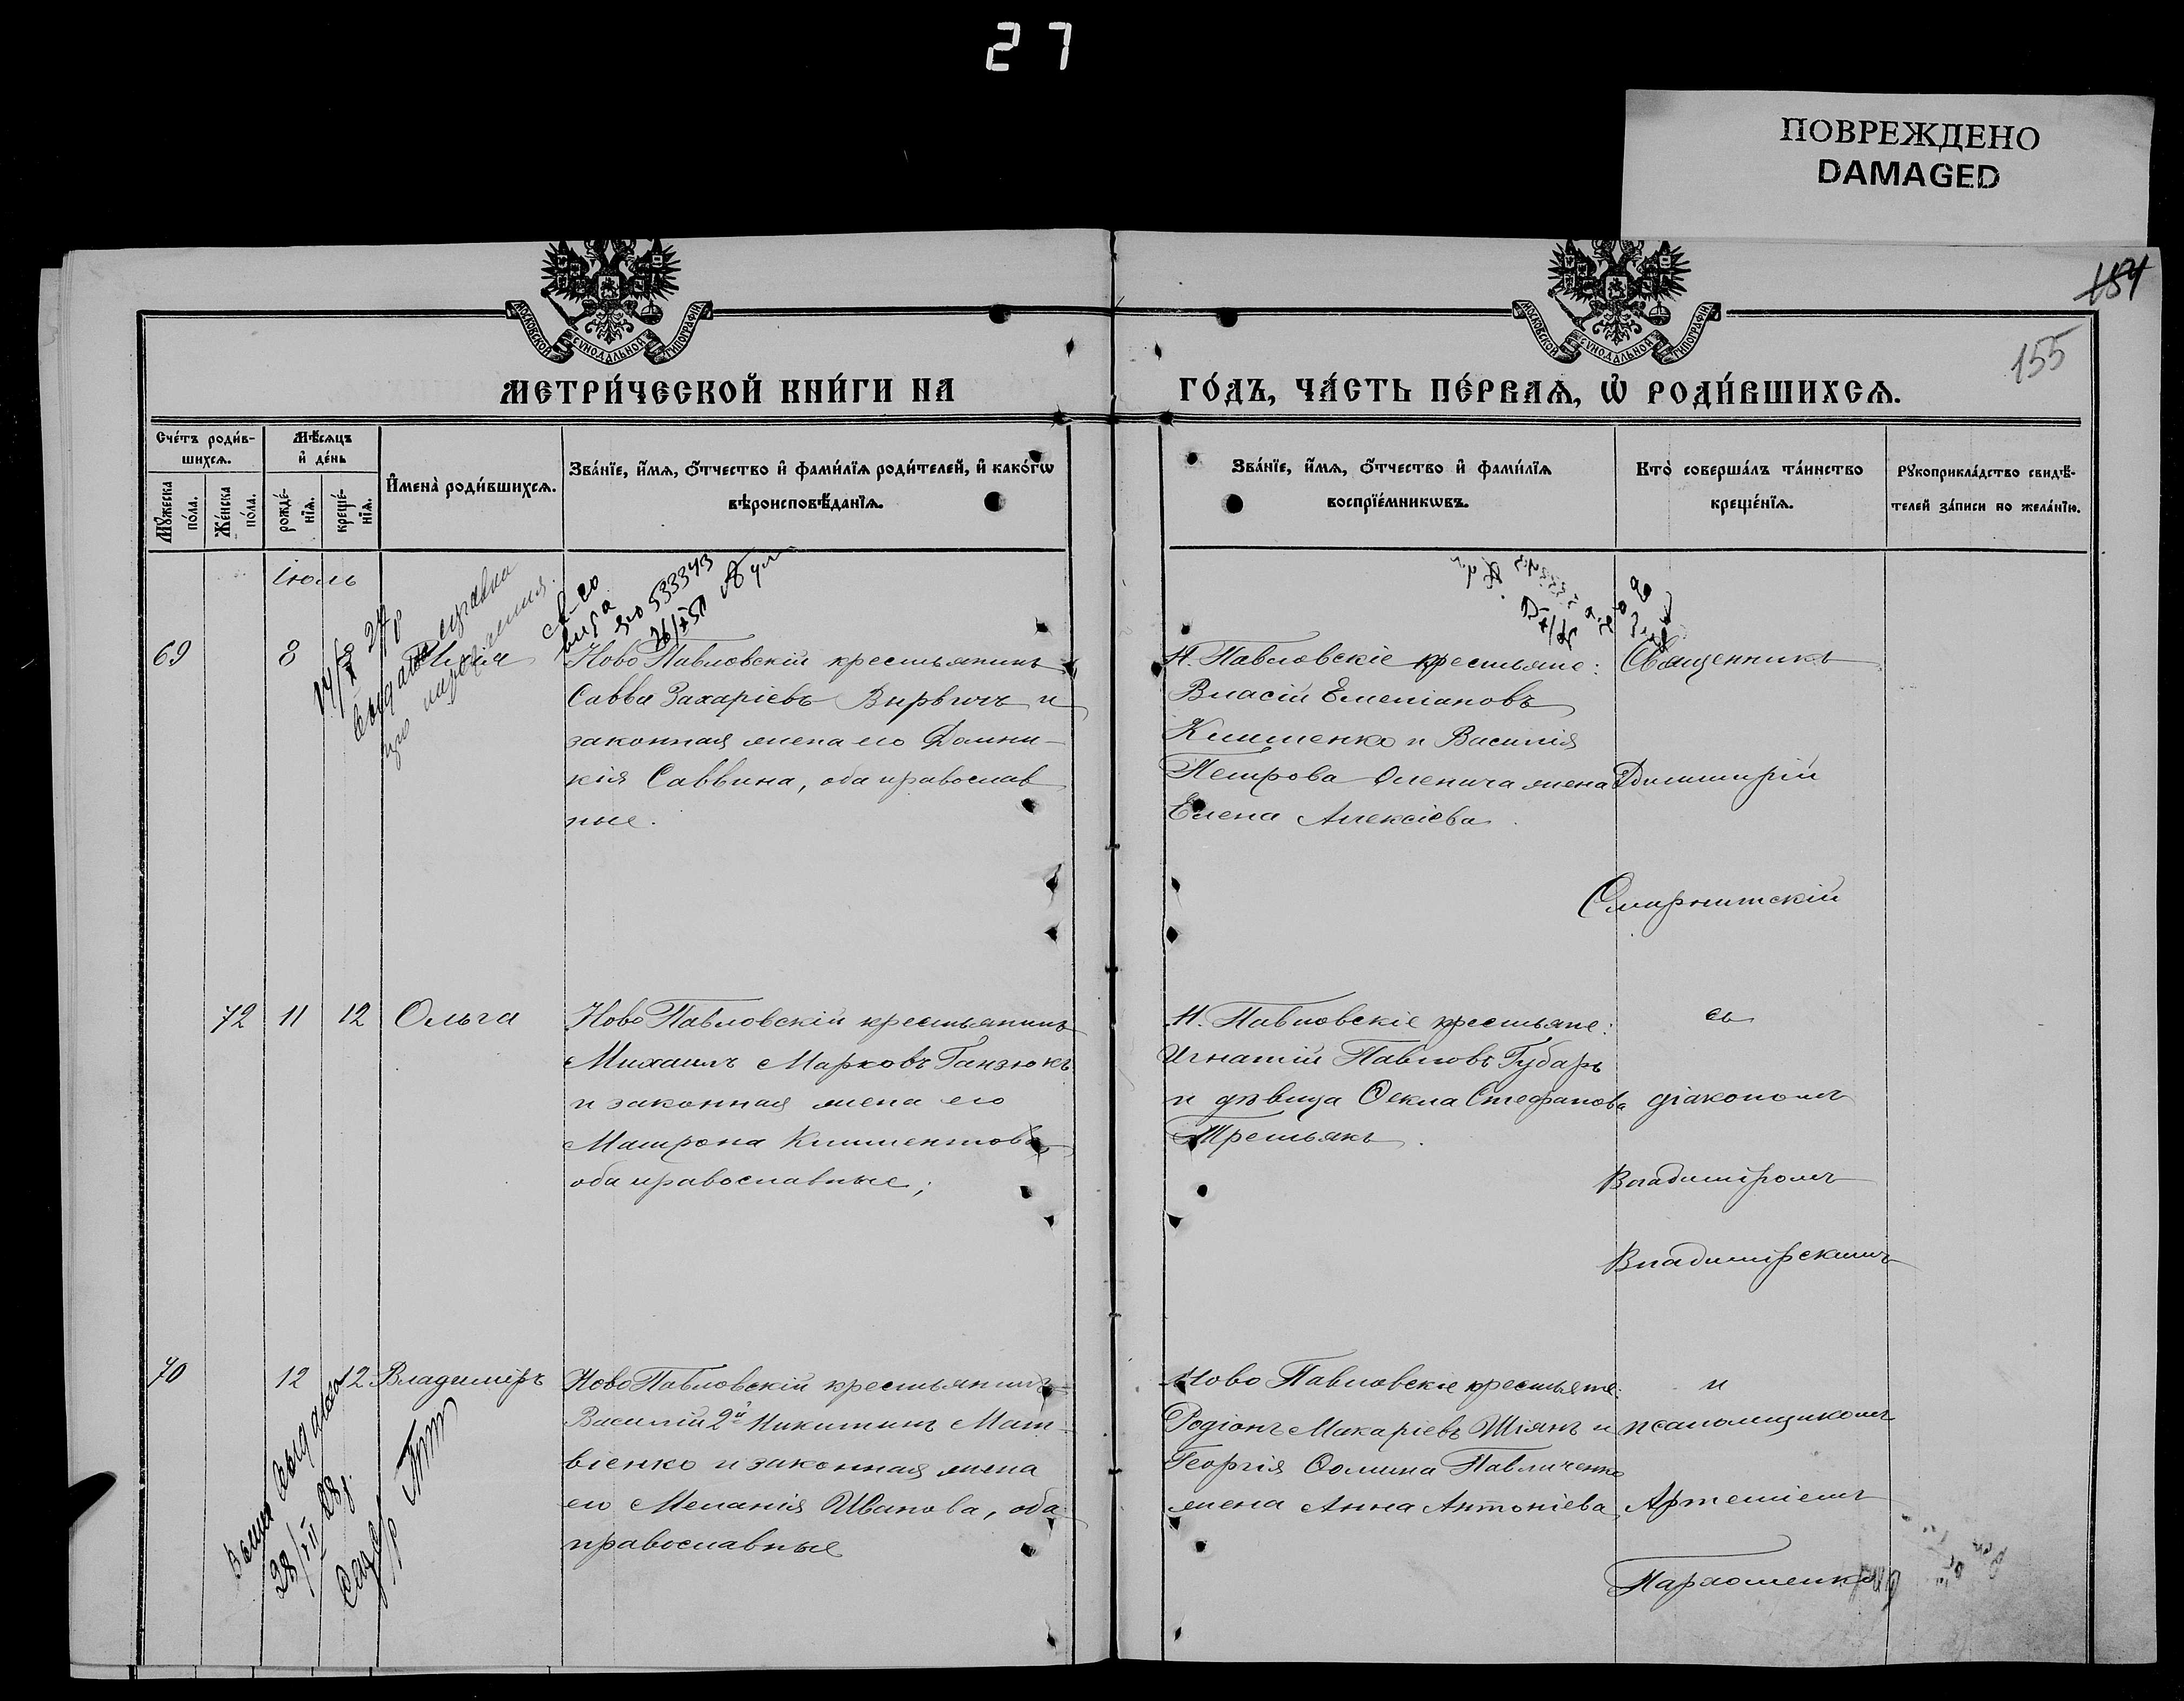 27
ПОВРЕЖДЕНО
DAMAGED
МОСКОВСКОЙ СѴНОДАЛЬНОЙ ТИПОГРАФІИ
МОСКОВСКОЙ СѴНОДАЛЬНОЙ ТИПОГРАФІИ
154
155
МЕТРИ́ЧЕСКОЙ КНИ́ГИ НА ГО́ДЪ, ЧА́СТЬ ПЕ́РВАѦ, Ѡ҆ РОДИ́ВШИХСѦ.
Сче́тъ роди́в-
шихсѧ.
Мѣ́сѧцъ
и҆ де́нь
Мꙋ́жеска
по́ла.
Же́нска
по́ла.
рожде́-
нїѧ.
креще́-
нїѧ.
И҆мена̀ роди́вшихсѧ.
Зва́нїе, и҆́мѧ, ѻ҆́тчество и҆ фами́лїѧ роди́телей, и҆ како́гѡ
вѣроисповѣ́данїѧ.
Зва́нїе, и҆́мѧ, ѻ҆́тчество и҆ фами́лїѧ
воспрїе́мникѡвъ.
Кто̀ соверша́лъ та́инство
креще́нїѧ.
Рꙋкоприкла́дство свидѣ́-
телей за́писи по жела́нїю.
Іюль
справка
533343
69 8
Ново Павловскій крестьянинъ
Савва Захаріевъ Вырвичъ и
законная жена его Домни-
кія Саввина, оба православ
ные.
Н. Павловскіе крестьяне:
Власій Емеліановъ
Клименко и Василія
Петрова Оленича жена
Елена Алексіева
Священникъ
Димитрій
Смарнитскій
72 11 12 Ольга
Ново Павловскій крестьянинъ
Михаилъ Марковъ Ганзюкъ
и законная жена его
Матрона Климентова
оба православные;
Н. Павловскіе крестьяне:
Игнатій Павловъ Губарь
и дѣвица Ѳекла Стефанова
Третьякъ.
съ
діакономъ
Владиміромъ
Владимірскимъ
70 12 12 Владиміръ
Ново Павловскій крестьянинъ
Василій 2й Никитинъ Мат-
віенко и законная жена
его Меланія Иванова, оба
православные
Ново Павловскіе крестьяне:
Родіонъ Макаріевъ Шіянъ и
Георгія Ѳомина Павличенко
жена Анна Антоніева
и
псаломщикомъ
Артеміемъ
Пархоменко